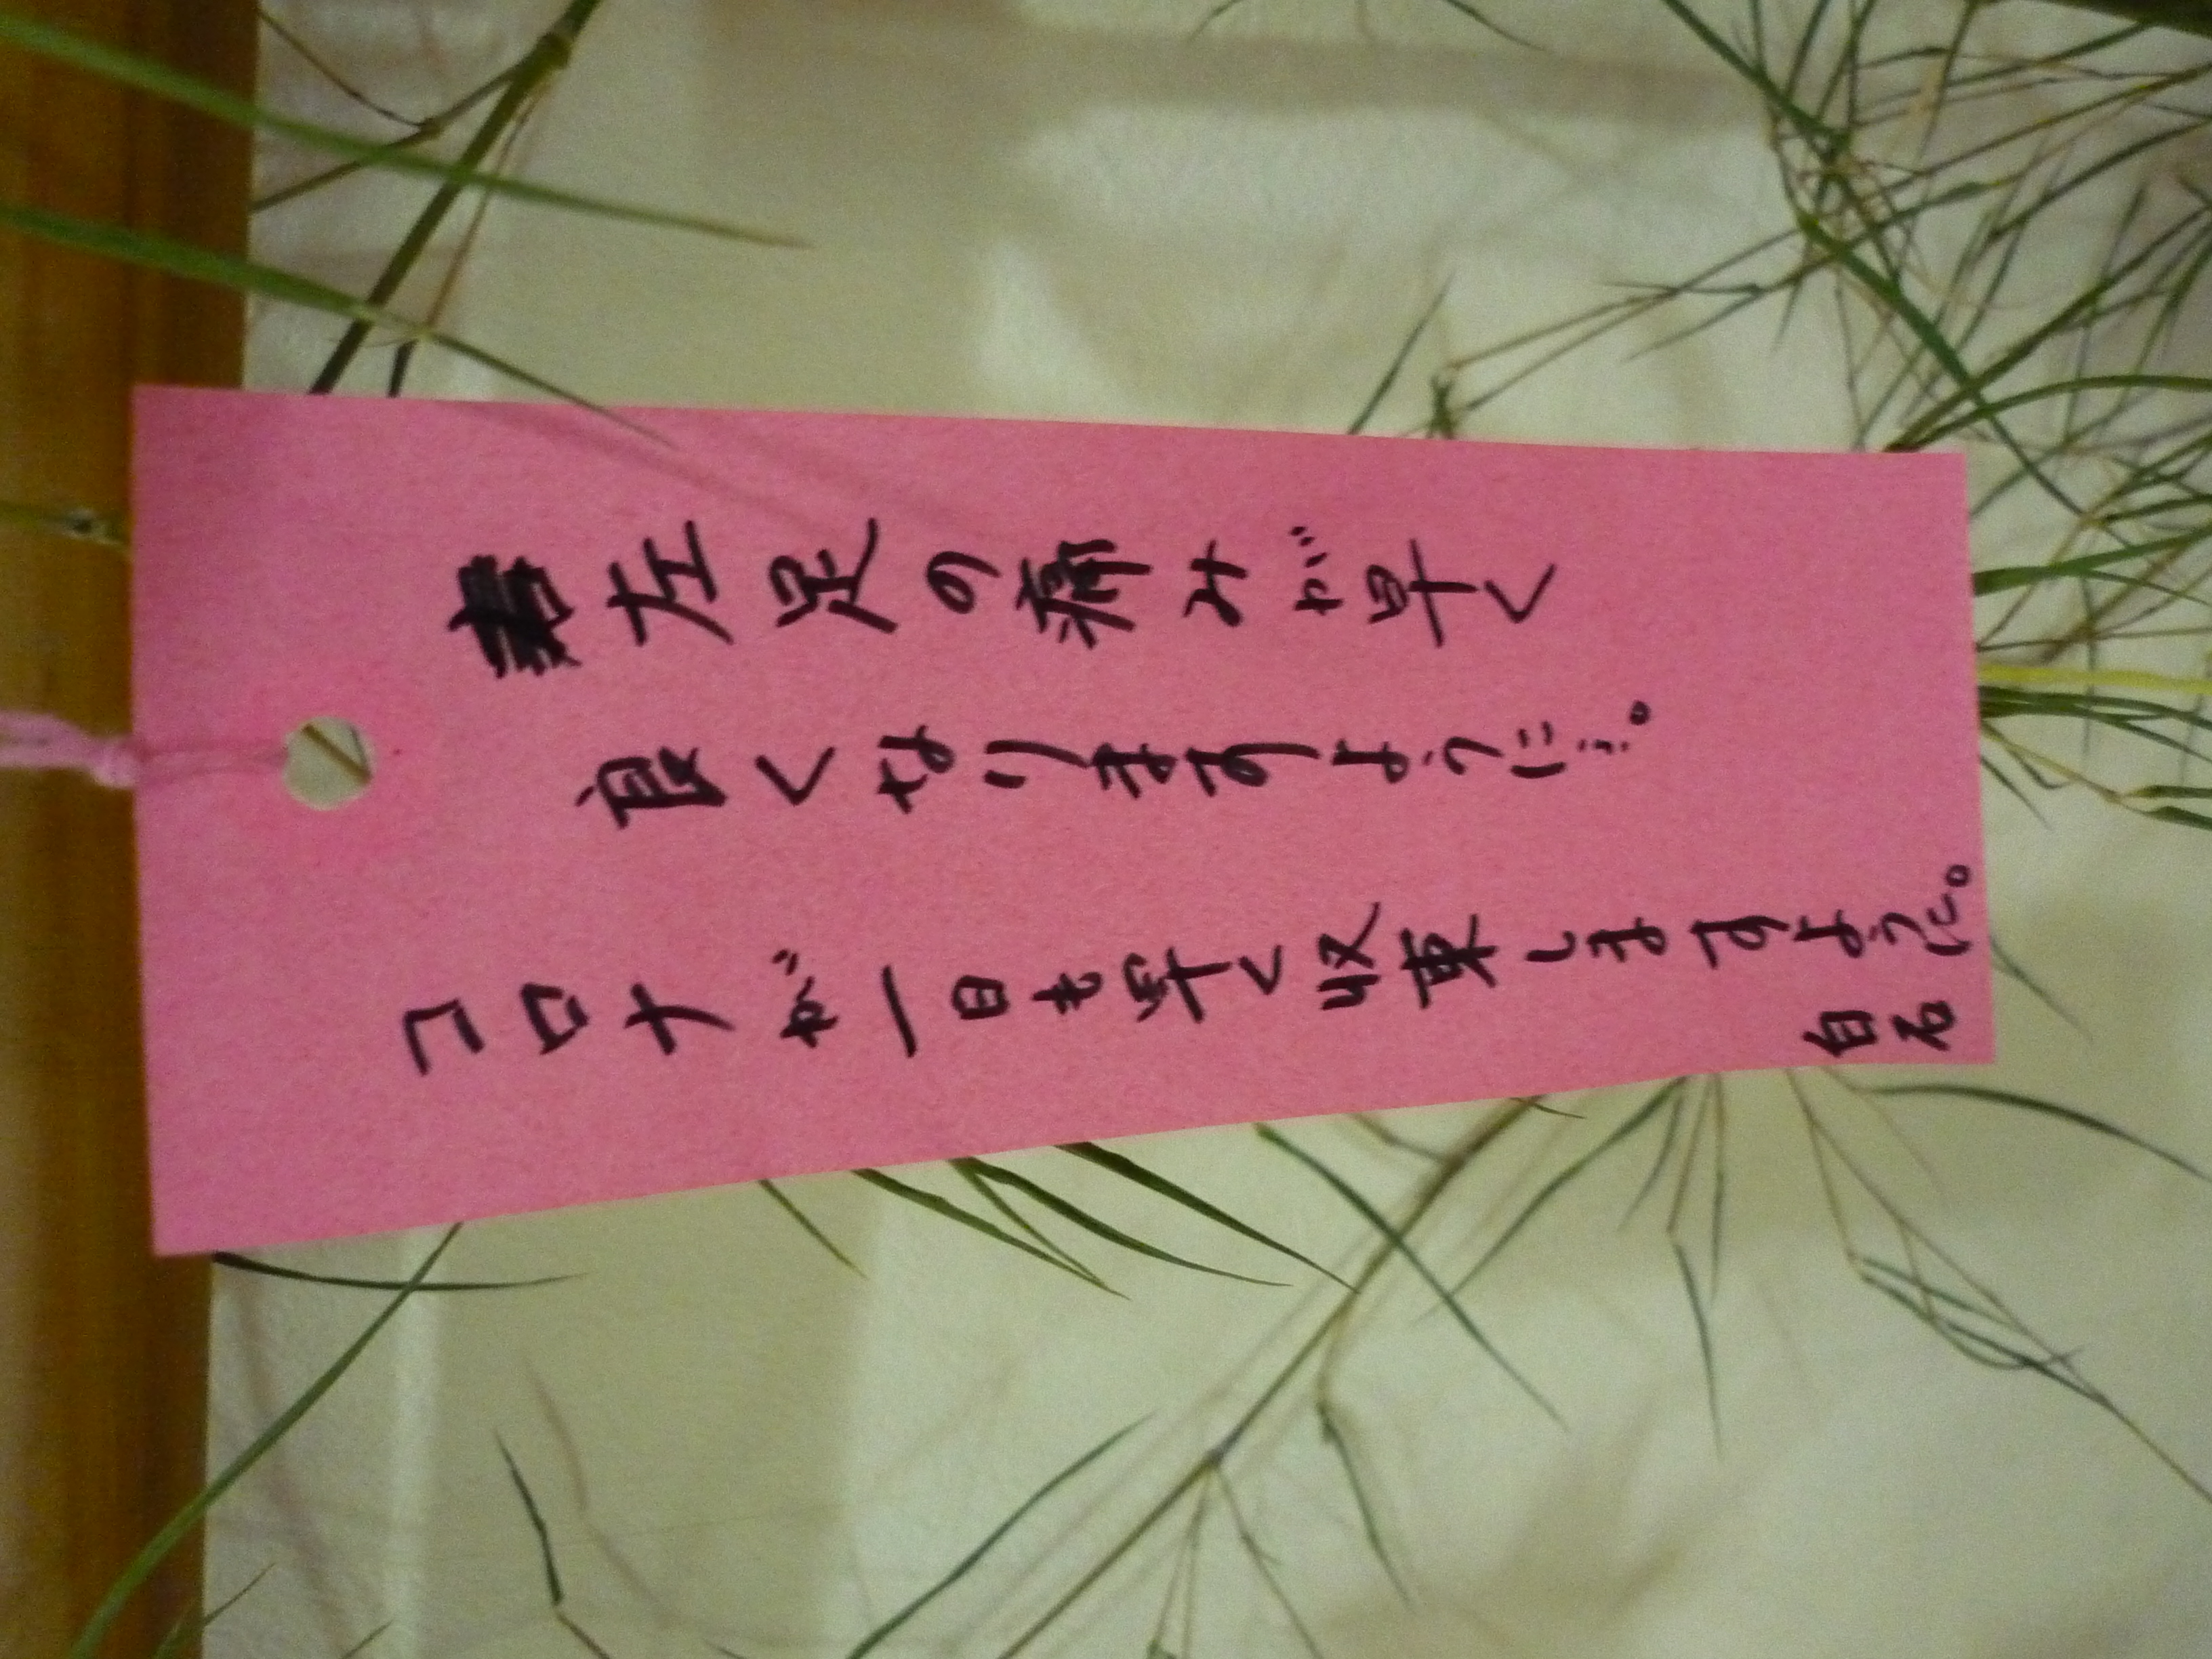 左足の痛みが早く
良くなりますように…。
コロナが一日も早く収束しますように。
白石